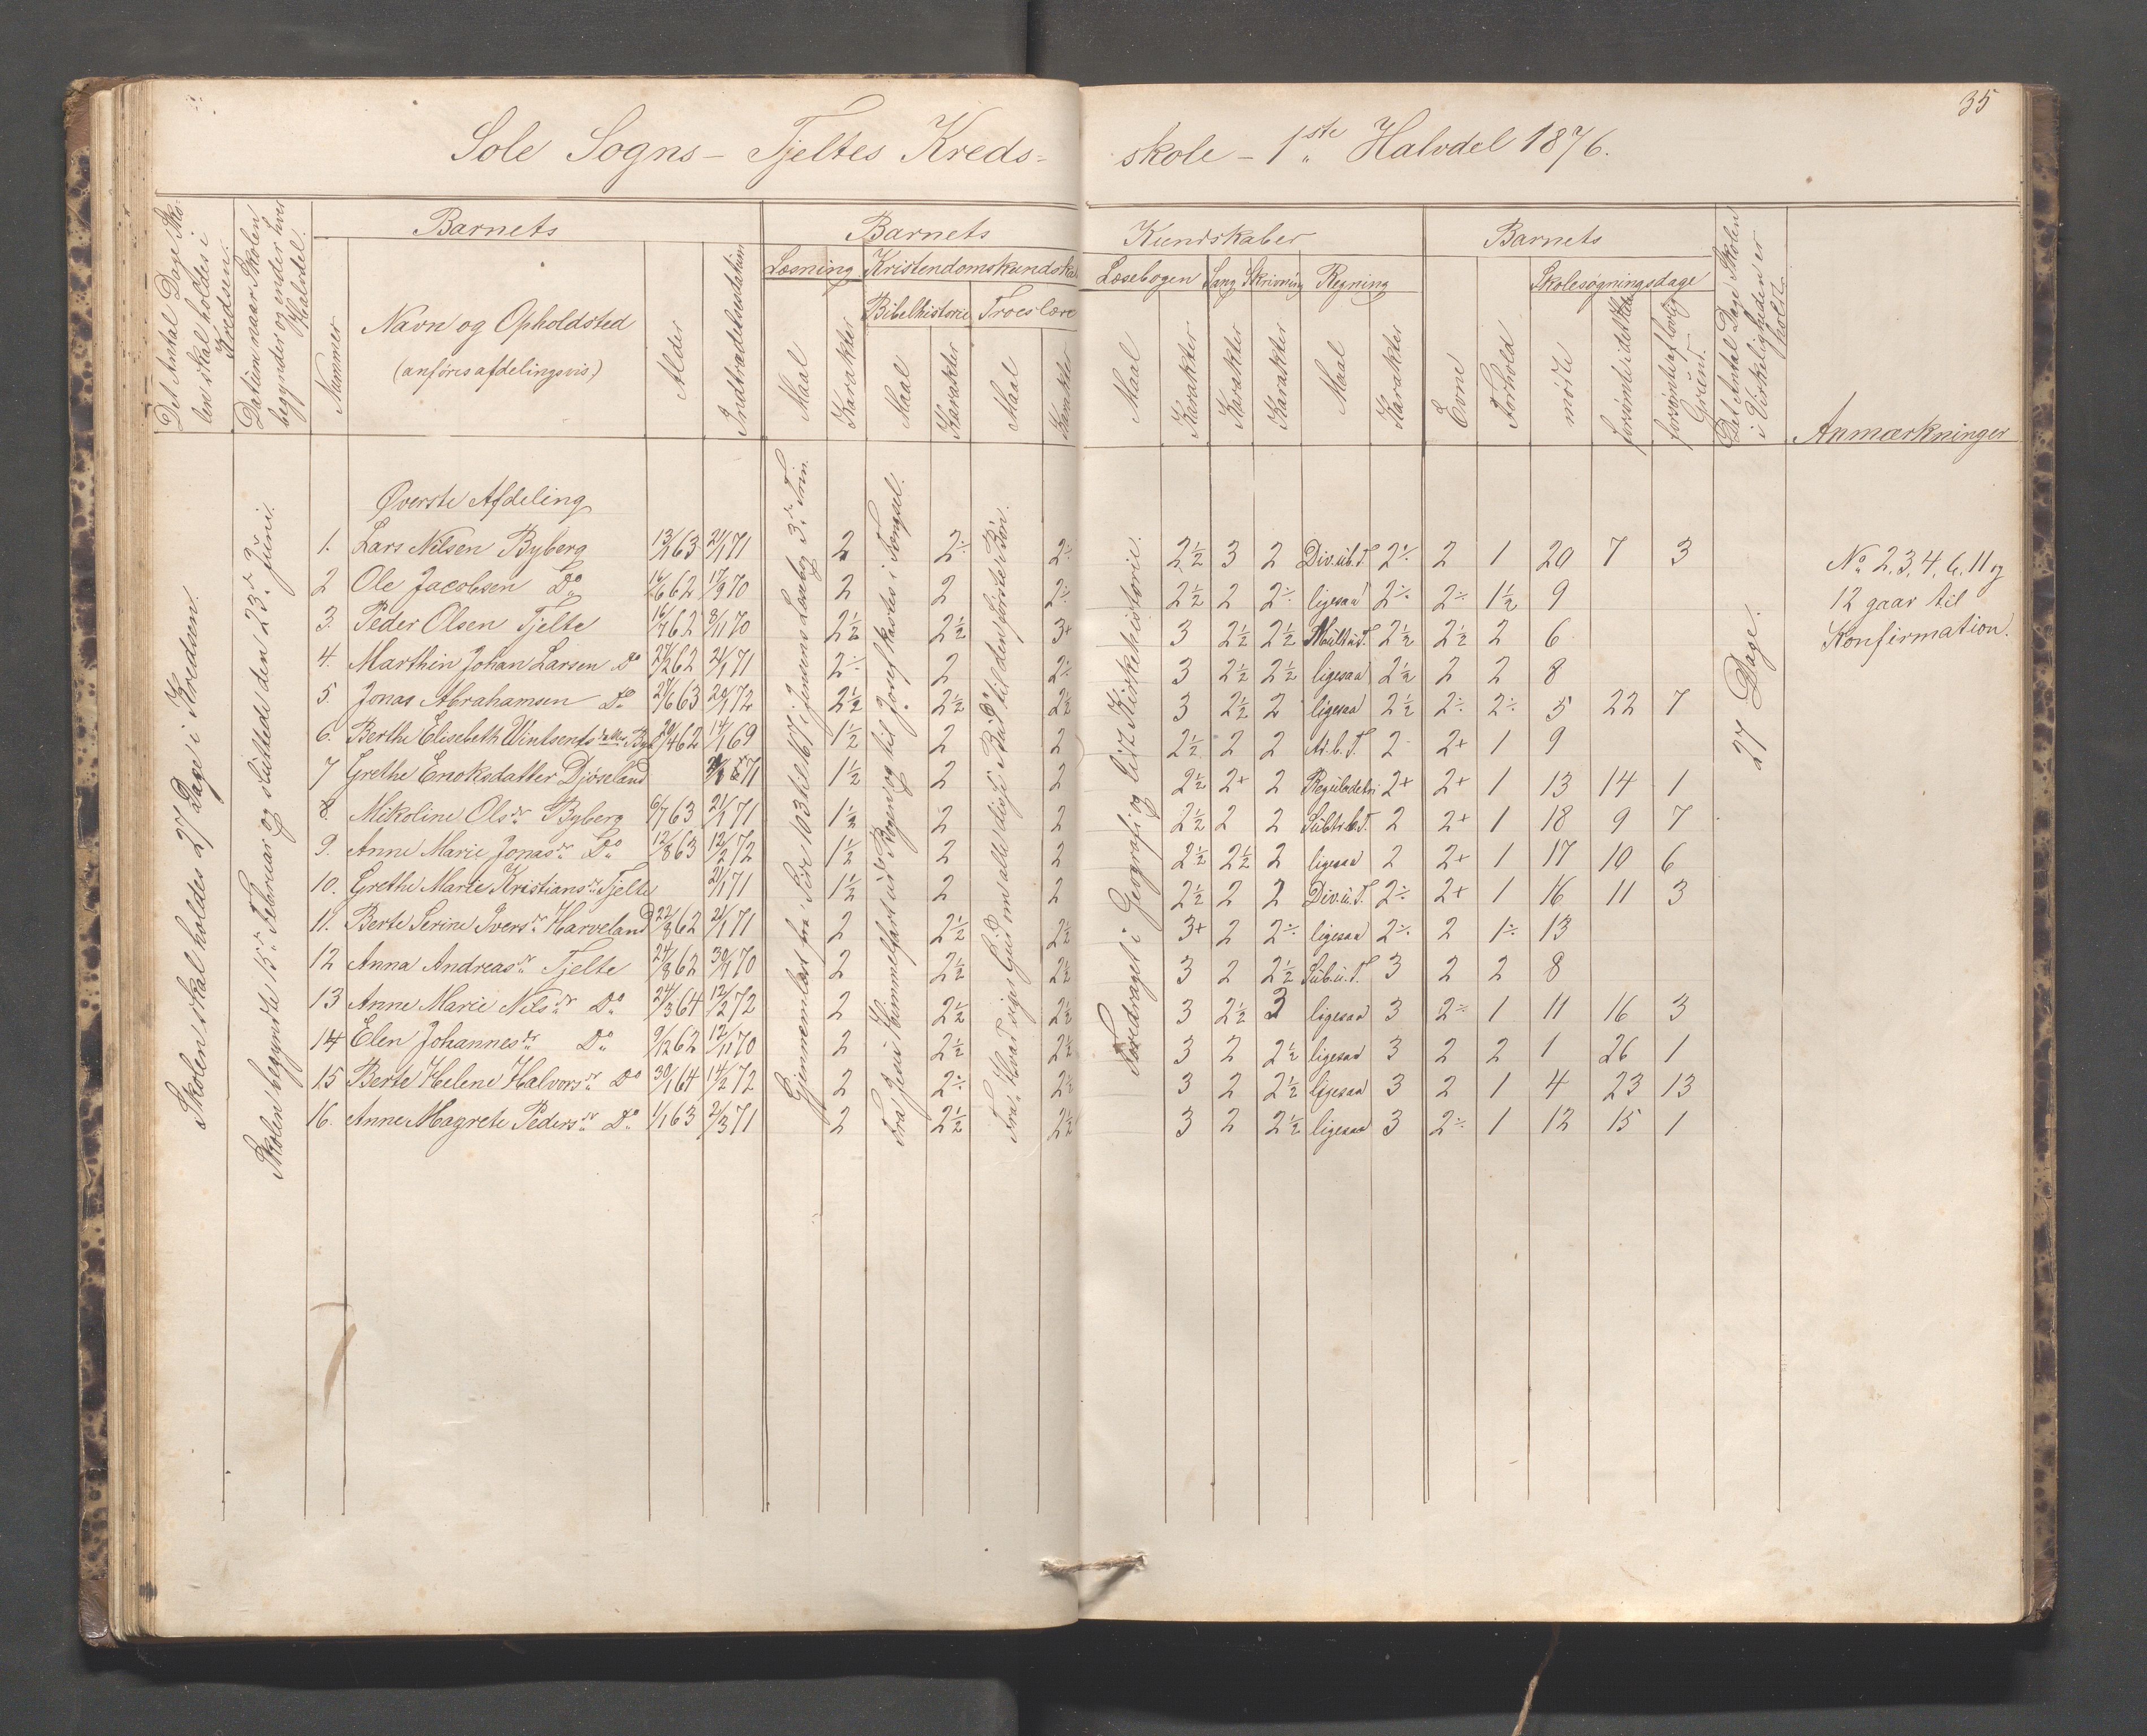 35
Sole Sogns – Tjeltes Kreds= skole – 1ste Halvdel 1876.
Det Antal Dage Sko-
len skal holdes i
Kredsen.
Datum naar Skolen
begynder og ender hver
Halvdel.
Barnets
Nummer
Navn og Opholdsted
(anføres afdelingsvis)
Alder
Indtrædelsesdatum
Barnets Kundskaber
Læsning
Maal
Karakter
Kristendomskundskab
Bibelhistorie
Maal
Karakter
Troeslære
Maal
Karakter
Læsebogen
Maal
Karakter
Sang
Karakter
Skrivning
Karakter
Regning
Maal
Karakter
Barnets
Evne
Forhold
Skolesøgningsdage
mødte
forsømte i det Hele
forsømte af lovlig
Grund.
Det Antal Dage Skolen
i Virkeligheden er
holdt.
Anmærkninger
Skolen skal holdes 27 Dage i Kredsen.
Skolen begyndte 15de Februar og sluttede den 23de Juni.
Gjennemlæst fra Side 103 til 167 i Jensens Læsebog 3die Trin.
Fra Jesu Himmelfart ud Bogen og til Josef kastes i Fængsel.
Fra Hvad siges Gud om alle disse Bud til den første Bøn.
Foredraget i Geografi og lidt Kirkehistorie.
27 Dage.
Øverste Afdeling
1. Lars Nilsen Byberg 13/1 63 21/1 71 2 2÷ 2÷ 2½ 3 2 Div.ub.T. 2÷ 2 1 20 7 3
2 Ole Jacobsen Do 16/6 62 17/9 70 2 2 2÷ 2½ 2 2÷ ligesaa 2÷ 2÷ 1½ 9
3. Peder Olsen Tjelte 16/7 62 8/11 70 2½ 2½ 3+ 3 2½ 2½ Mult.u.T. 2½ 2½ 2 6
4. Marthin Johan Larsen Do 27/2 62 21/1 71 2÷ 2 2÷ 3 2½ 2½ ligesaa 2½ 2 2 8
5. Jonas Abrahamsen Do 27/6 63 20/1 72 2½ 2½ 2½ 3 2½ 2 ligesaa 2½ 2÷ 2÷ 5 22 7
6. Berthe Elisebeth Wintsents datter Byb 20/4 62 14/1 69 1½ 2 2 2½ 2 2 Ad.b.T. 2 2+ 1 9
7 Grethe Enoksdatter Djøseland 71 1½ 2 2 2½ 2+ 2 Reguladetri 2+ 2+ 1 13 14 1
8. Mikoline Olsdr Byberg 6/7 63 21/1 71 1½ 2 2 2½ 2 2 Subtr.b.T. 2 2+ 1 18 9 7
9. Anne Marie Jonasdr Do 12/8 63 12/2 72 1½ 2 2 2½ 2½ 2 ligesaa 2 2+ 1 17 10 6
10. Grethe Marie Kristiansdr Tjelte 21/1 71 1½ 2 2 2½ 2 2 Div.u.T. 2÷ 2+ 1 16 11 3
11. Berte Serine Iversdr Harveland 22/8 62 21/1 71 2 2½ 2½ 3+ 2 2÷ ligesaa 2÷ 2 1÷ 13
12 Anna Andreasdr Tjelte 24/8 62 30/1 70 2 2½ 2½ 3 2 2½ Sub.u.T. 3 2 2 8
13 Anne Marie Nilsdr Do 24/3 64 12/2 72 2 2½ 2½ 3 2½ 3 ligesaa 3 2÷ 1 11 16 3
14 Elen Johannesdr Do 9/12 62 12/11 70 2 2½ 2½ 3 2 2½ ligesaa 3 2 2 1 26 1
15 Berte Helene Halvorsdr Do 30/1 64 14/2 72 2 2÷ 2½ 3 2 2½ ligesaa 3 2 1 4 23 13
16. Anne Magrete Pedersdr Do 1/1 63 2/3 71 2 2½ 2½ 3 2 2½ ligesaa 3 2÷ 1 12 15 1
No 2, 3, 4, 6, 11 og
12 gaar til
Konfirmation.